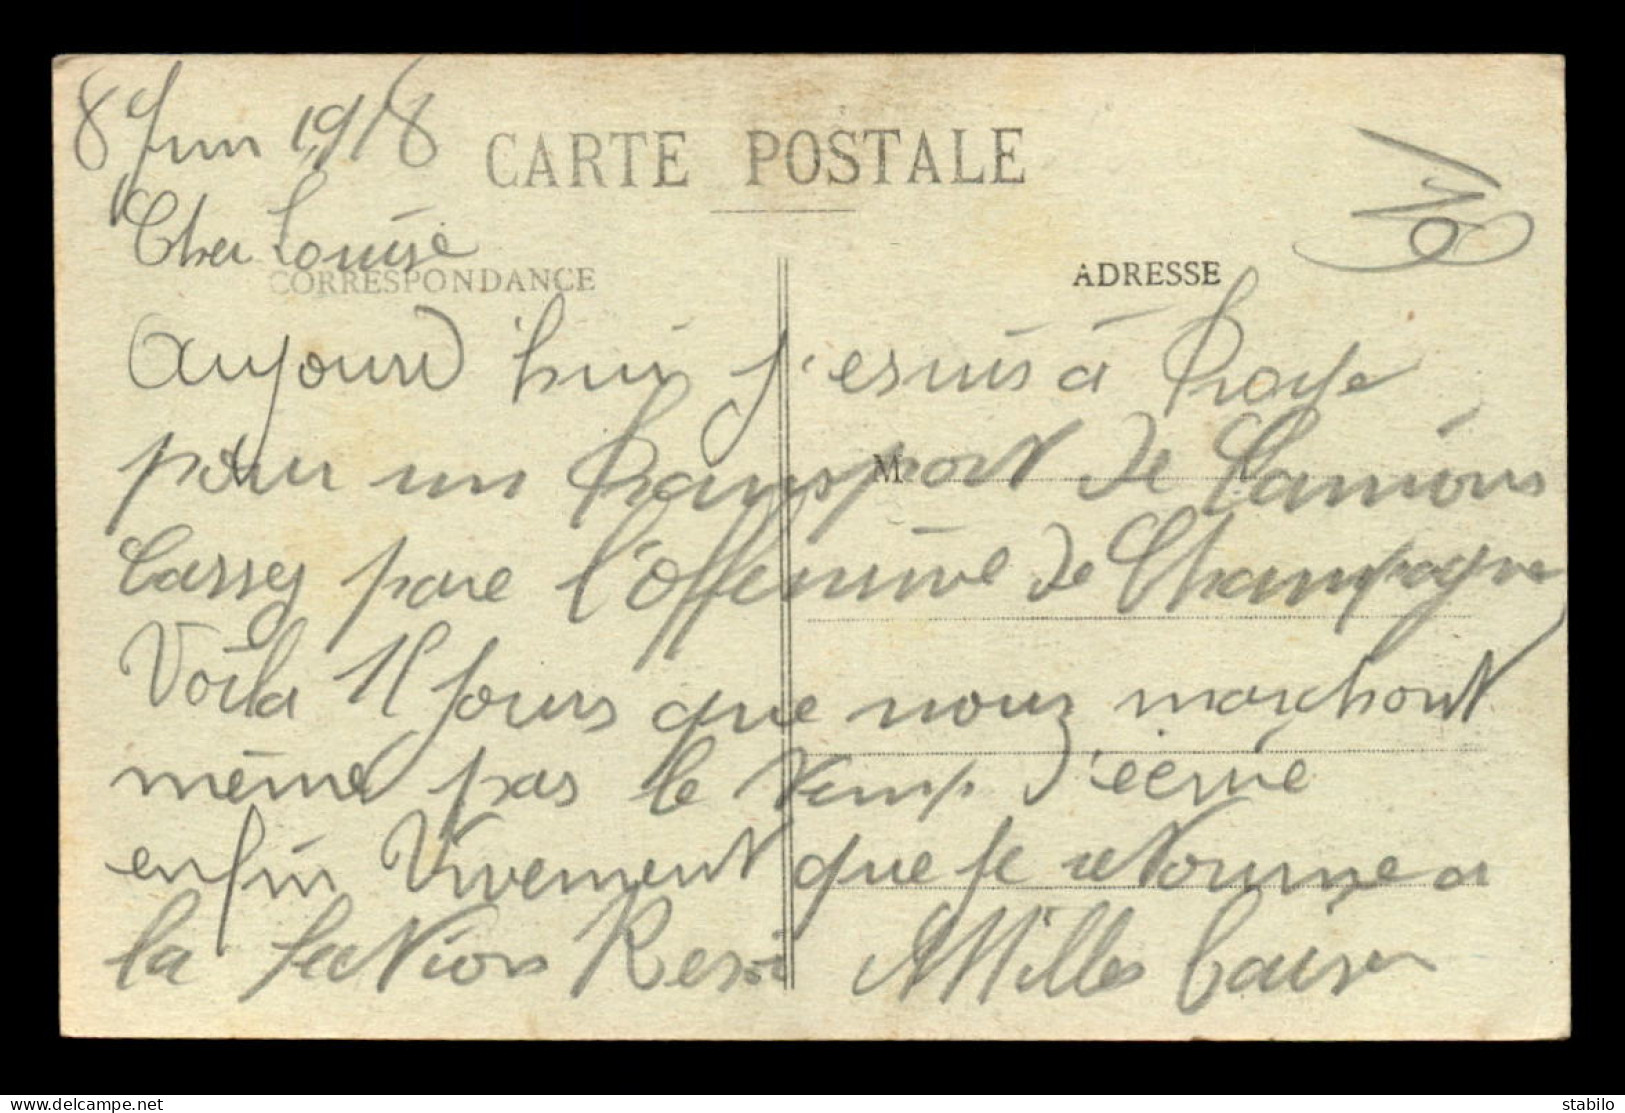 8 Juin 1918
CARTE POSTALE
Cher Louise
CORRESPONDANCE
ADRESSE
aujourd hui j'esuis à Troye
pour un transport de Camions
M
Casses pare l'offensive de Champagne
Voila 15 jours que nous marchont
même pas le temp d'ecrire
enfin Vivement que je retourne a
la section Milles baiser
www.delcampe.net
stabilo